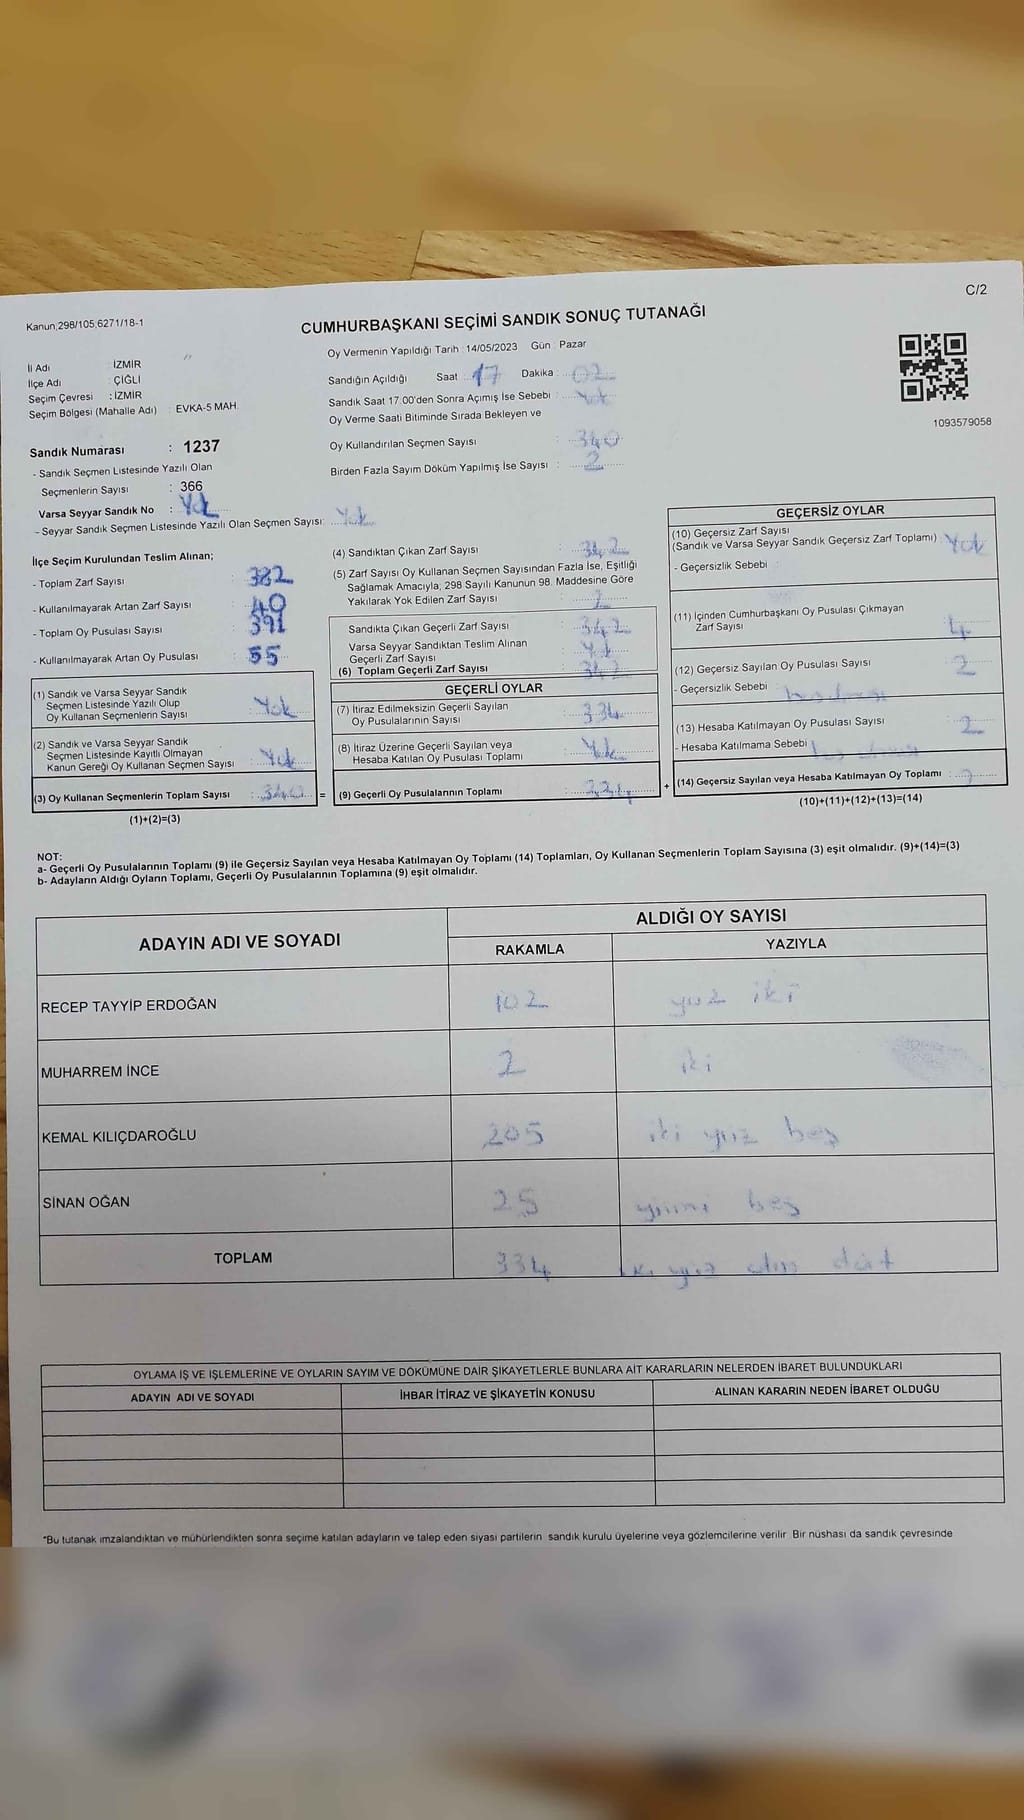 C/2
Kanun;298/105;6271/18-1
CUMHURBAŞKANI SEÇİMİ SANDIK SONUÇ TUTANAĞI
Oy Vermenin Yapıldığı Tarih : 14/05/2023 Gün : Pazar
İl Adı : İZMİR
İlçe Adı : ÇİĞLİ
Seçim Çevresi : İZMİR
Seçim Bölgesi (Mahalle Adı) : EVKA-5 MAH.
Sandığın Açıldığı Saat : 17 Dakika : 02
Sandık Saat 17:00'den Sonra Açımış İse Sebebi : Yok
Oy Verme Saati Bitiminde Sırada Bekleyen ve
Oy Kullandırılan Seçmen Sayısı : 340
Birden Fazla Sayım Döküm Yapılmış İse Sayısı : 2
1093579058
Sandık Numarası : 1237
- Sandık Seçmen Listesinde Yazılı Olan
Seçmenlerin Sayısı : 366
Varsa Seyyar Sandık No : Yok
- Seyyar Sandık Seçmen Listesinde Yazılı Olan Seçmen Sayısı: Yok
İlçe Seçim Kurulundan Teslim Alınan;
- Toplam Zarf Sayısı : 382
- Kullanılmayarak Artan Zarf Sayısı : 40
- Toplam Oy Pusulası Sayısı : 391
- Kullanılmayarak Artan Oy Pusulası : 55
(1) Sandık ve Varsa Seyyar Sandık
Seçmen Listesinde Yazılı Olup
Oy Kullanan Seçmenlerin Sayısı : Yok
(2) Sandık ve Varsa Seyyar Sandık
Seçmen Listesinde Kayıtlı Olmayan
Kanun Gereği Oy Kullanan Seçmen Sayısı : Yok
(3) Oy Kullanan Seçmenlerin Toplam Sayısı : 340 =
(1)+(2)=(3)
(4) Sandıktan Çıkan Zarf Sayısı : 342
(5) Zarf Sayısı Oy Kullanan Seçmen Sayısından Fazla İse, Eşitliği
Sağlamak Amacıyla, 298 Sayılı Kanunun 98. Maddesine Göre
Yakılarak Yok Edilen Zarf Sayısı : 2
Sandıkta Çıkan Geçerli Zarf Sayısı : 342
Varsa Seyyar Sandıktan Teslim Alınan
Geçerli Zarf Sayısı : Yok
(6) Toplam Geçerli Zarf Sayısı : 342
GEÇERLİ OYLAR
(7) İtiraz Edilmeksizin Geçerli Sayılan
Oy Pusulalarının Sayısı : 334
(8) İtiraz Üzerine Geçerli Sayılan veya
Hesaba Katılan Oy Pusulası Toplamı : Yok
(9) Geçerli Oy Pusulalarının Toplamı : 334 +
GEÇERSİZ OYLAR
(10) Geçersiz Zarf Sayısı
(Sandık ve Varsa Seyyar Sandık Geçersiz Zarf Toplamı) : Yok
- Geçersizlik Sebebi :
(11) İçinden Cumhurbaşkanı Oy Pusulası Çıkmayan
Zarf Sayısı : 4
(12) Geçersiz Sayılan Oy Pusulası Sayısı : 2
- Geçersizlik Sebebi :
(13) Hesaba Katılmayan Oy Pusulası Sayısı : 2
- Hesaba Katılmama Sebebi :
(14) Geçersiz Sayılan veya Hesaba Katılmayan Oy Toplamı :
(10)+(11)+(12)+(13)=(14)
NOT:
a- Geçerli Oy Pusulalarının Toplamı (9) ile Geçersiz Sayılan veya Hesaba Katılmayan Oy Toplamı (14) Toplamları, Oy Kullanan Seçmenlerin Toplam Sayısına (3) eşit olmalıdır. (9)+(14)=(3)
b- Adayların Aldığı Oyların Toplamı, Geçerli Oy Pusulalarının Toplamına (9) eşit olmalıdır.
ADAYIN ADI VE SOYADI
ALDIĞI OY SAYISI
RAKAMLA YAZIYLA
RECEP TAYYİP ERDOĞAN 102 yüz iki
MUHARREM İNCE 2 iki
KEMAL KILIÇDAROĞLU 205 iki yüz beş
SİNAN OĞAN 25 yirmi beş
TOPLAM 334 iki yüz dört
OYLAMA İŞ VE İŞLEMLERİNE VE OYLARIN SAYIM VE DÖKÜMÜNE DAİR ŞİKAYETLERLE BUNLARA AİT KARARLARIN NELERDEN İBARET BULUNDUKLARI
ADAYIN ADI VE SOYADI İHBAR İTİRAZ VE ŞİKAYETİN KONUSU ALINAN KARARIN NEDEN İBARET OLDUĞU
*Bu tutanak imzalandıktan ve mühürlendikten sonra seçime katılan adayların ve talep eden siyasi partilerin sandık kurulu üyelerine veya gözlemcilerine verilir. Bir nüshası da sandık çevresinde